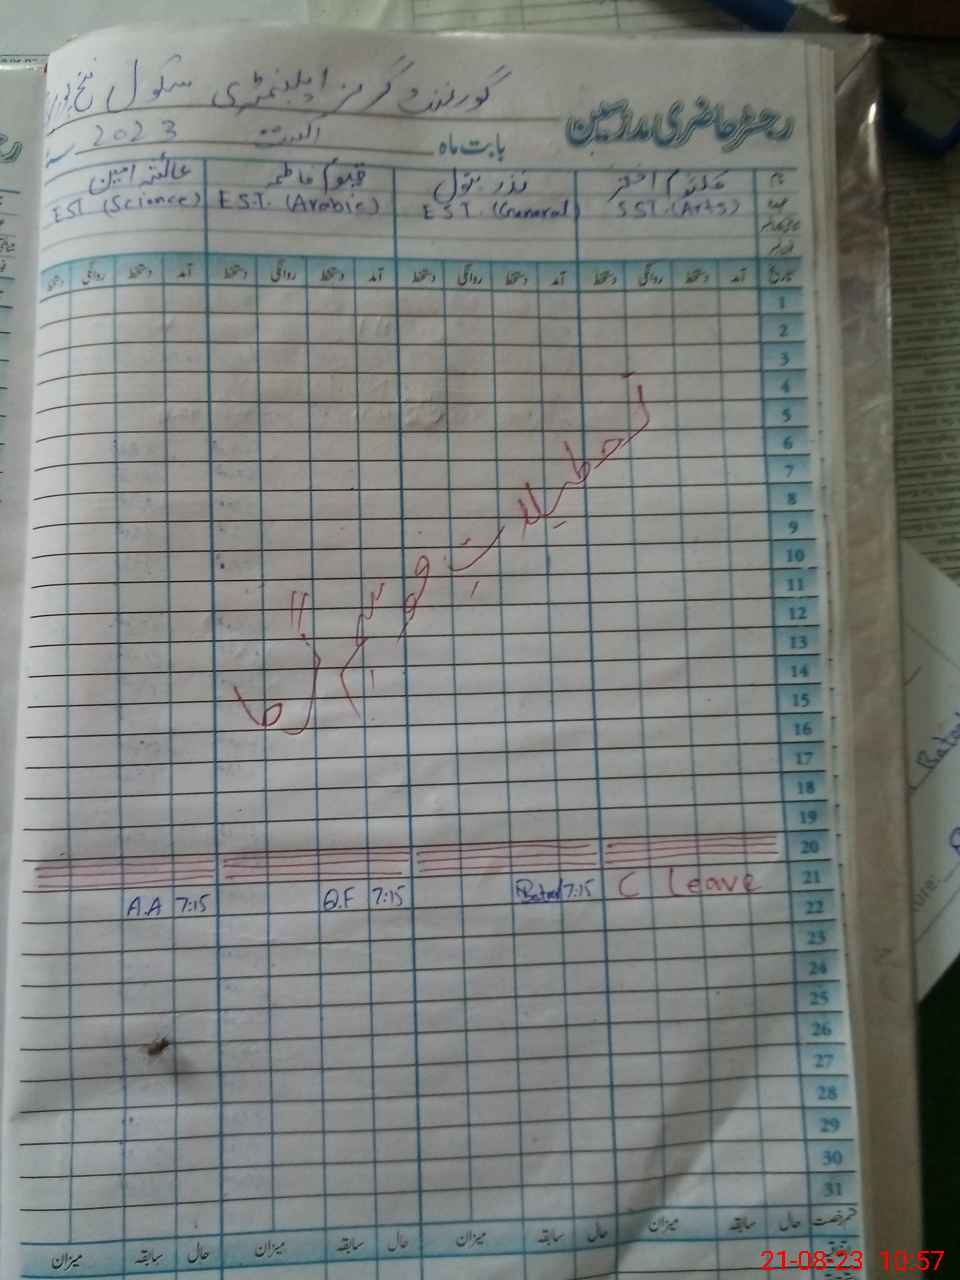 گورنمنٹ گرلز ایلیمنٹری سکول
رجسٹر حاضری مدرسین
بابت ماہ اگست 2023
نام کلثوم اختر نذر بتول قیوم فاطمہ عائشہ امین
عہدہ SST. (Arts) E.S.T. (General) E.S.T. (Arabic) EST (Science)
تاریخ آمد دستخط روانگی دستخط آمد دستخط روانگی دستخط آمد دستخط روانگی دستخط آمد دستخط روانگی دستخط
1
2
3
4
5
6
7
8
9
10
11
12
13
14
15
16
17
18
19
20
21 C Leave 7:15 Batool 7:15 Q.F 7:15 A.A
22
23
24
25
26
27
28
29
30
31
قسم رخصت حال سابقہ میزان حال سابقہ میزان حال سابقہ میزان حال سابقہ میزان
21-08-23 10:57